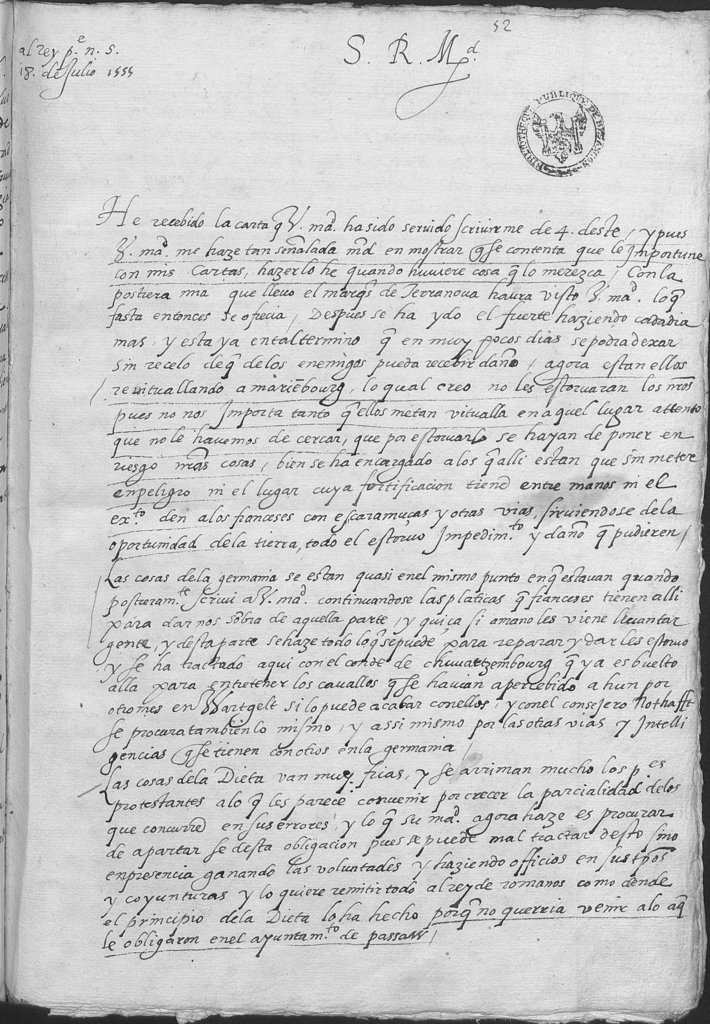 52
al rey pe. n. s.
18. de Julio 1555
S. R. Md.
BIBLIOTHEQUE PUBLIQUE DE BESANCON
He recebido la carta q V. md. ha sido servido scrivirme de 4. deste, y pues
V. md. me haze tan señalada md en mostrar q se contenta que le importune
con mis cartas, hazerlo he quando huviere cosa q lo merezca, Con la
postrera mia que llevo el marqs de Terranova havra visto V. md. lo q
fasta entonces se ofrecia, Despues se ha ydo el fuerte haziendo cada dia
mas, y esta ya en tal termino q en muy pocos dias se podra dexar
sin recelo de q de los enemigos pueda recebir daño, agora estan ellos
revituallando a mariēbourg, lo qual creo no les estorvaran los nros
pues no nos importa tanto q ellos metan vitualla en aquel lugar attento
que no le havemos de cercar, que por estorvarlo se hayan de poner en
riesgo mas cosas, bien se ha encargado a los q alli estan que sin meter
en peligro ni el lugar cuya fortificacion tienē entre manos ni el
exto. den a los franceses con escaramuças y otras vias, sirviendose de la
oportunidad de la tierra, todo el estorvo Impedimto. y daño q pudieren,
Las cosas de la germania se estan quasi en el mismo punto en q estavan quando
postreramte scrivi a V. md. continuandose las platicas q franceses tienen alli
para dar nos sobra de aquella parte, y quiça si a mano les viene llevantar
gente, y desta parte se haze todo lo q se puede para reparar y dar les estorvo
y se ha tractado aqui con el conde de chwartzembourg q ya es buelto
alla para entretener los cavallos q se havian apercebido a hun por
otro mes en Wartgelt si lo puede acabar con ellos, y con el consejero Nothafft
se procura tambien lo mismo, y assi mismo por las otras vias y Intelli
gencias q se tienen con otros en la germania,
Las cosas de la Dieta van muy frias, y se arriman mucho los p.es
protestantes a lo q les parece convenir por crecer la parcialidad de los
que concurrē en sus errores, y lo q su md. agora haze es procurar
de apartar se desta obligacion pues se puede mal tractar desto sino
en presencia ganando las voluntades y haziendo officios en sus tpos
y coyunturas y lo quiere remitir todo al rey de romanos como dende
el principio de la Dieta lo ha hecho porq no querria venir a lo a q
le obligaron en el ayuntamto. de passaw,